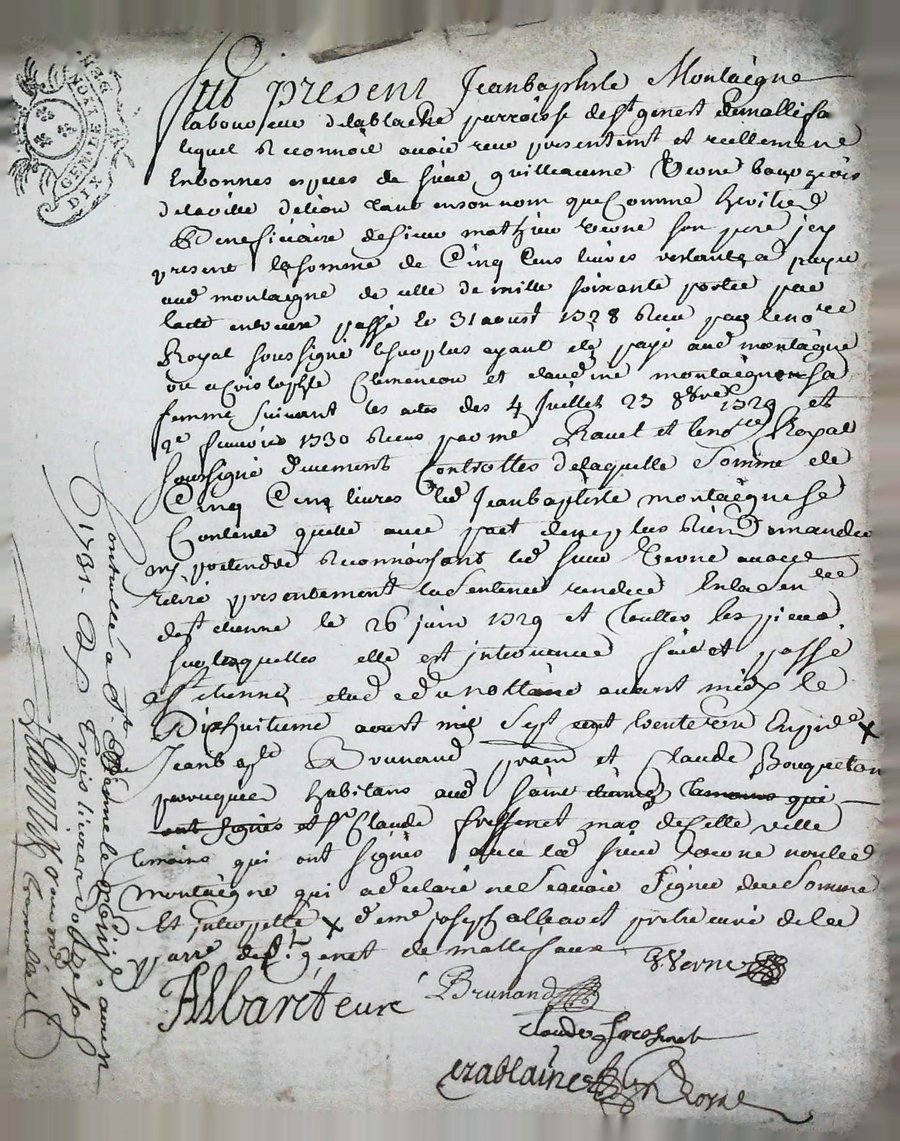 GEN. DE LION
DIX
fut present Jeanbaptiste Montaigne
laboureur delablache parroisse de st genest demallifa
lequel Reconnoit avoir receu presentemt et reellement
Enbonnes especes de sieur guilleaume Verne bourgeois
delaville delion tant ensonnom que Comme heritier
Beneficiaire desieur mathieu verne son pere icy
present lasomme de Cinq Cens livres restante a payer
aud montaigne de celle de mille soixante portée par
lacte entreux passé le 31 aoust 1728 Receu par leno.re
Royal soussigné lesurplus ayant eté payé aud montaigne
ou a Cristophle Clemencon et claudine montaigne sa
femme suivant les actes des 4 Juillet 23 8bre 1729 et
2e Janvier 1730 Receus par me Ravel et leno.re Royal
soussigné duement Controlles delaquelle somme de
Cinq Cens livres led Jeanbaptiste montaigne se
Contente quitte avec pact den plus Rien Demander
ny pretendre Reconnoissant led sieur Verne avoir
retiré presentement lasentence rendue Enla sen.ée
dest etienne le 26 juin 1729 et touttes les pieces
surlesquelles elle est intervenue fait et passé
a st etienne etude du nottaire avant midy le
Dixhuitieme aoust mil sept cent trente un En pnce x
Jeanbapt Brunand et Claude Bouquet
perruquier habitans aud saint etienne temoins qui
ont signés et sr Claude fressenet mar de cette ville
temoins qui ont signés avec led sieur verne nonled
montaigne qui a declaré ne scavoir signer dece somme
Et interpellé x de me joseph allearet pretre curé de lad
parr de st genet de mallifaux
GVerne
Allbaret curé
Brunand
claude fressenet
Royal
Controllé a st Etienne le aoust
1731. R trois livres douze sols